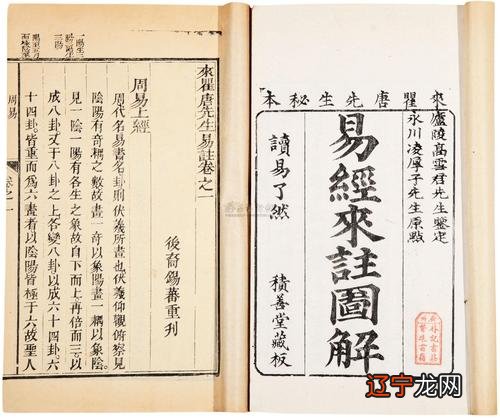 來瞿唐先生秘本
廬陵高雪君先生鑒定
永川凌厚子先生原點
易經來註圖解
讀易了然
積善堂藏板
來瞿唐先生易註卷之一
後裔錫蕃重刊
周易上經
周代名易書名卦則伏羲所畫也伏羲仰觀俯察見
陰陽有奇耦之數故畫一奇以象陽畫一耦以象陰。
見一陰一陽有各生之象故自下而上再倍而三以
成八卦又于八卦之上各變八卦以成六十四卦六
十四卦。皆重而為六畫者以陰陽皆極于六故聖人
周易
卷之一
辽宁龙网